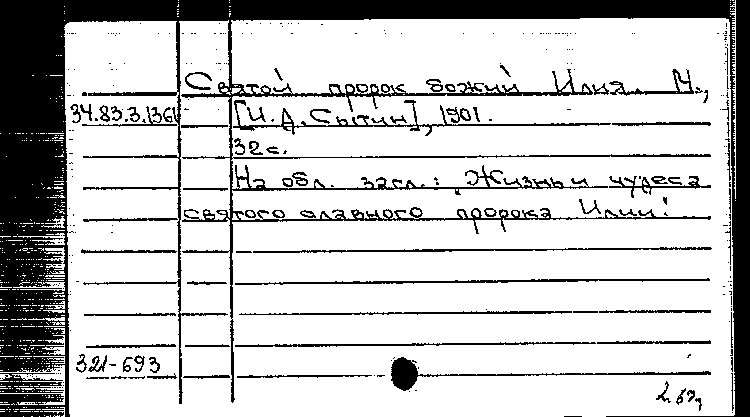 Святой пророк божий Илия. М.,
34.83.3.1361 [И.Д. Сытин], 1901.
32 с.
На обл. загл.: "Жизнь и чудеса
святого славного пророка Илии."
321-693